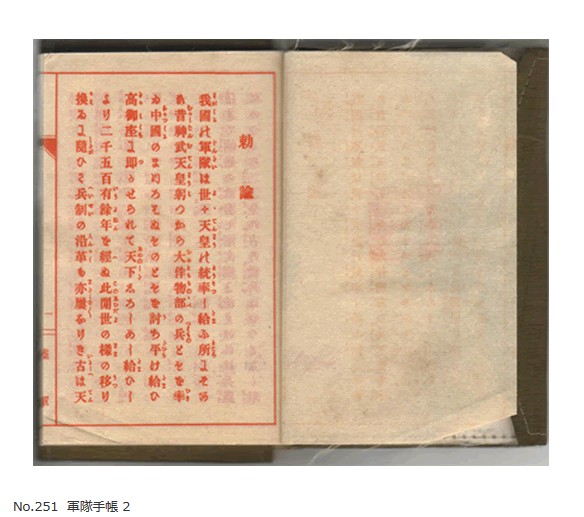 勅諭
我國の軍隊は世々天皇の統率し給ふ所にそあ
る昔神武天皇躬つから大伴物部の兵ともを率
ゐ中國のまつろはぬものともを討ち平け給ひ
高御座に即かせられて天下しろしめし給ひし
より二千五百有餘年を經ぬ此間世の樣の移り
換るに隨ひて兵制の沿革も亦屢なりき古は天
No.251 軍隊手帳 2